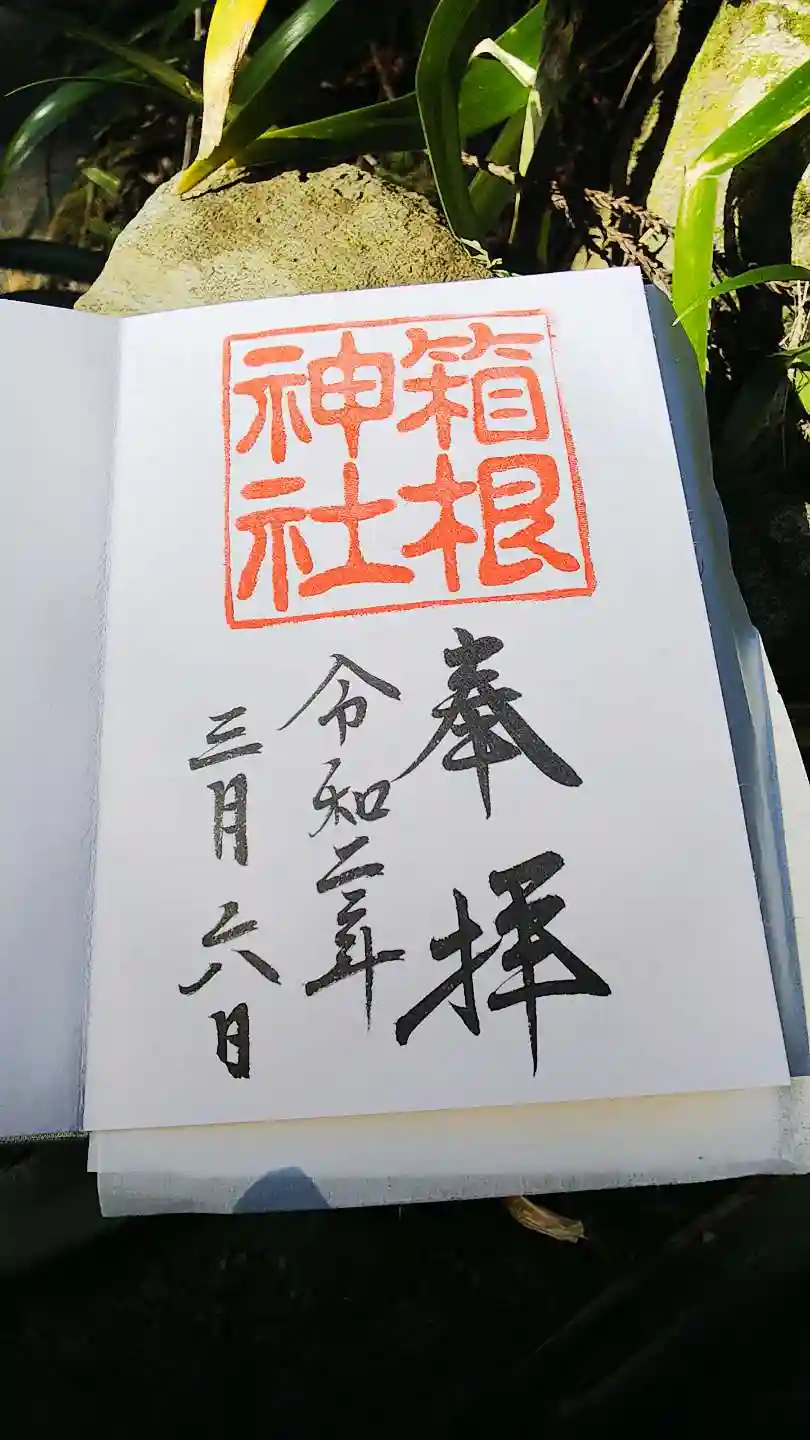 箱根
神社
奉拝
令和二年
三月六日